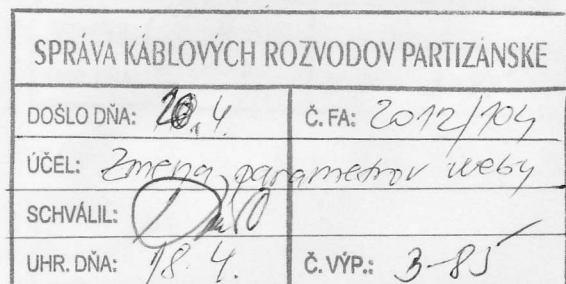 SPRÁVA KÁBLOVÝCH ROZVODOV PARTIZÁNSKE
DOŠLO DŇA: 4. Č. FA: 2012/104
ÚČEL: Zmena parametrov weby
SCHVÁLIL:
UHR. DŇA: 18. 4. Č. VÝP.: 3-85